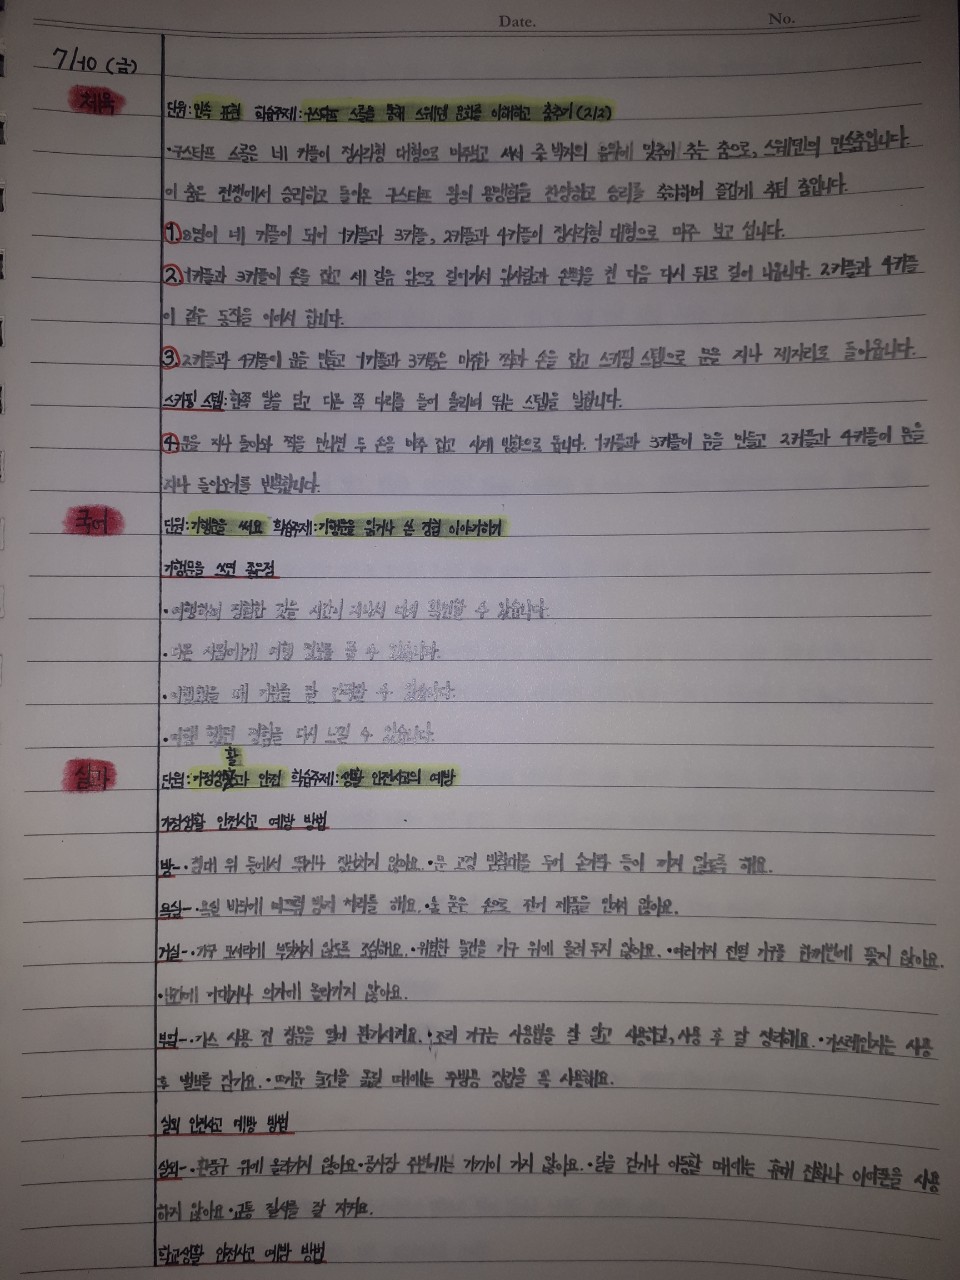 Date.
No.
7/10 (금)
체육
단원: 민속 표현 학습주제: 구스타프 스콜을 통해 스웨덴 문화를 이해하고 춤추기 (2/2)
·구스타프 스콜은 네 커플이 정사각형 대형으로 마주보고 4/4 박자의 음악에 맞추어 추는 춤으로, 스웨덴의 민속춤입니다.
이 춤은 전쟁에서 승리하고 돌아온 구스타프 왕의 용맹함을 찬양하고 승리를 축하하며 즐겁게 추던 춤입니다.
① 8명이 네 커플이 되어 1커플과 3커플, 2커플과 4커플이 정사각형 대형으로 마주 보고 섭니다.
② 1커플과 3커플이 손을 잡고 세 걸음 앞으로 걸어가서 손뼉을 친 다음 다시 뒤로 걸어 나옵니다. 2커플과 4커플
이 같은 동작을 이어서 합니다.
③ 2커플과 4커플이 문을 만들고 1커플과 3커플은 마주한 짝과 손을 잡고 스키핑 스텝으로 문을 지나 제자리로 돌아옵니다.
스키핑 스텝: 한쪽 발을 딛고 다른 쪽 다리를 들어 올리며 뛰는 스텝을 말합니다.
④ 문을 지나 돌아와 짝을 만나면 두 손을 마주 잡고 시계 방향으로 돕니다. 1커플과 3커플이 문을 만들고 2커플과 4커플이 문을
지나 돌아오기를 반복합니다.
국어
단원: 기행문을 써요 학습주제: 기행문을 읽거나 쓴 경험 이야기하기
기행문을 쓰면 좋은점
·여행하며 경험한 것을 시간이 지나서 다시 확인할 수 있습니다.
·다른 사람에게 여행 정보를 줄 수 있습니다.
·여행했을 때 기분을 잘 간직할 수 있습니다.
·여행 했던 경험을 다시 느낄 수 있습니다.
실과
단원: 가정생활과 안전 학습주제: 생활 안전사고의 예방
가정생활 안전사고 예방 방법
방-·침대 위 등에서 뛰거나 장난하지 않아요. ·문 고정 받침대를 두어 손가락 등이 끼지 않도록 해요.
욕실-·욕실 바닥에 미끄럼 방지 처리를 해요. ·물 묻은 손으로 전기 제품을 만지지 않아요.
거실-·가구 모서리에 부딪치지 않도록 조심해요. ·위험한 물건을 가구 위에 올려 두지 않아요. ·여러가지 전열 기구를 한꺼번에 꽂지 않아요.
·난간에 기대거나 의자에 올라가지 않아요.
부엌-·가스 사용 전 창문을 열어 환기시켜요. ·조리 기구는 사용법을 잘 알고 사용하고, 사용 후 잘 정리해요. ·가스레인지는 사용
후 밸브를 잠가요. ·뜨거운 물건을 옮길 때에는 주방용 장갑을 꼭 사용해요.
실외 안전사고 예방 방법
실외-·환풍구 위에 올라가지 않아요 ·공사장 주변에는 가까이 가지 않아요. ·길을 걷거나 이동할 때에는 휴대 전화나 이어폰을 사용
하지 않아요 ·교통 질서를 잘 지켜요.
학교생활 안전사고 예방 방법